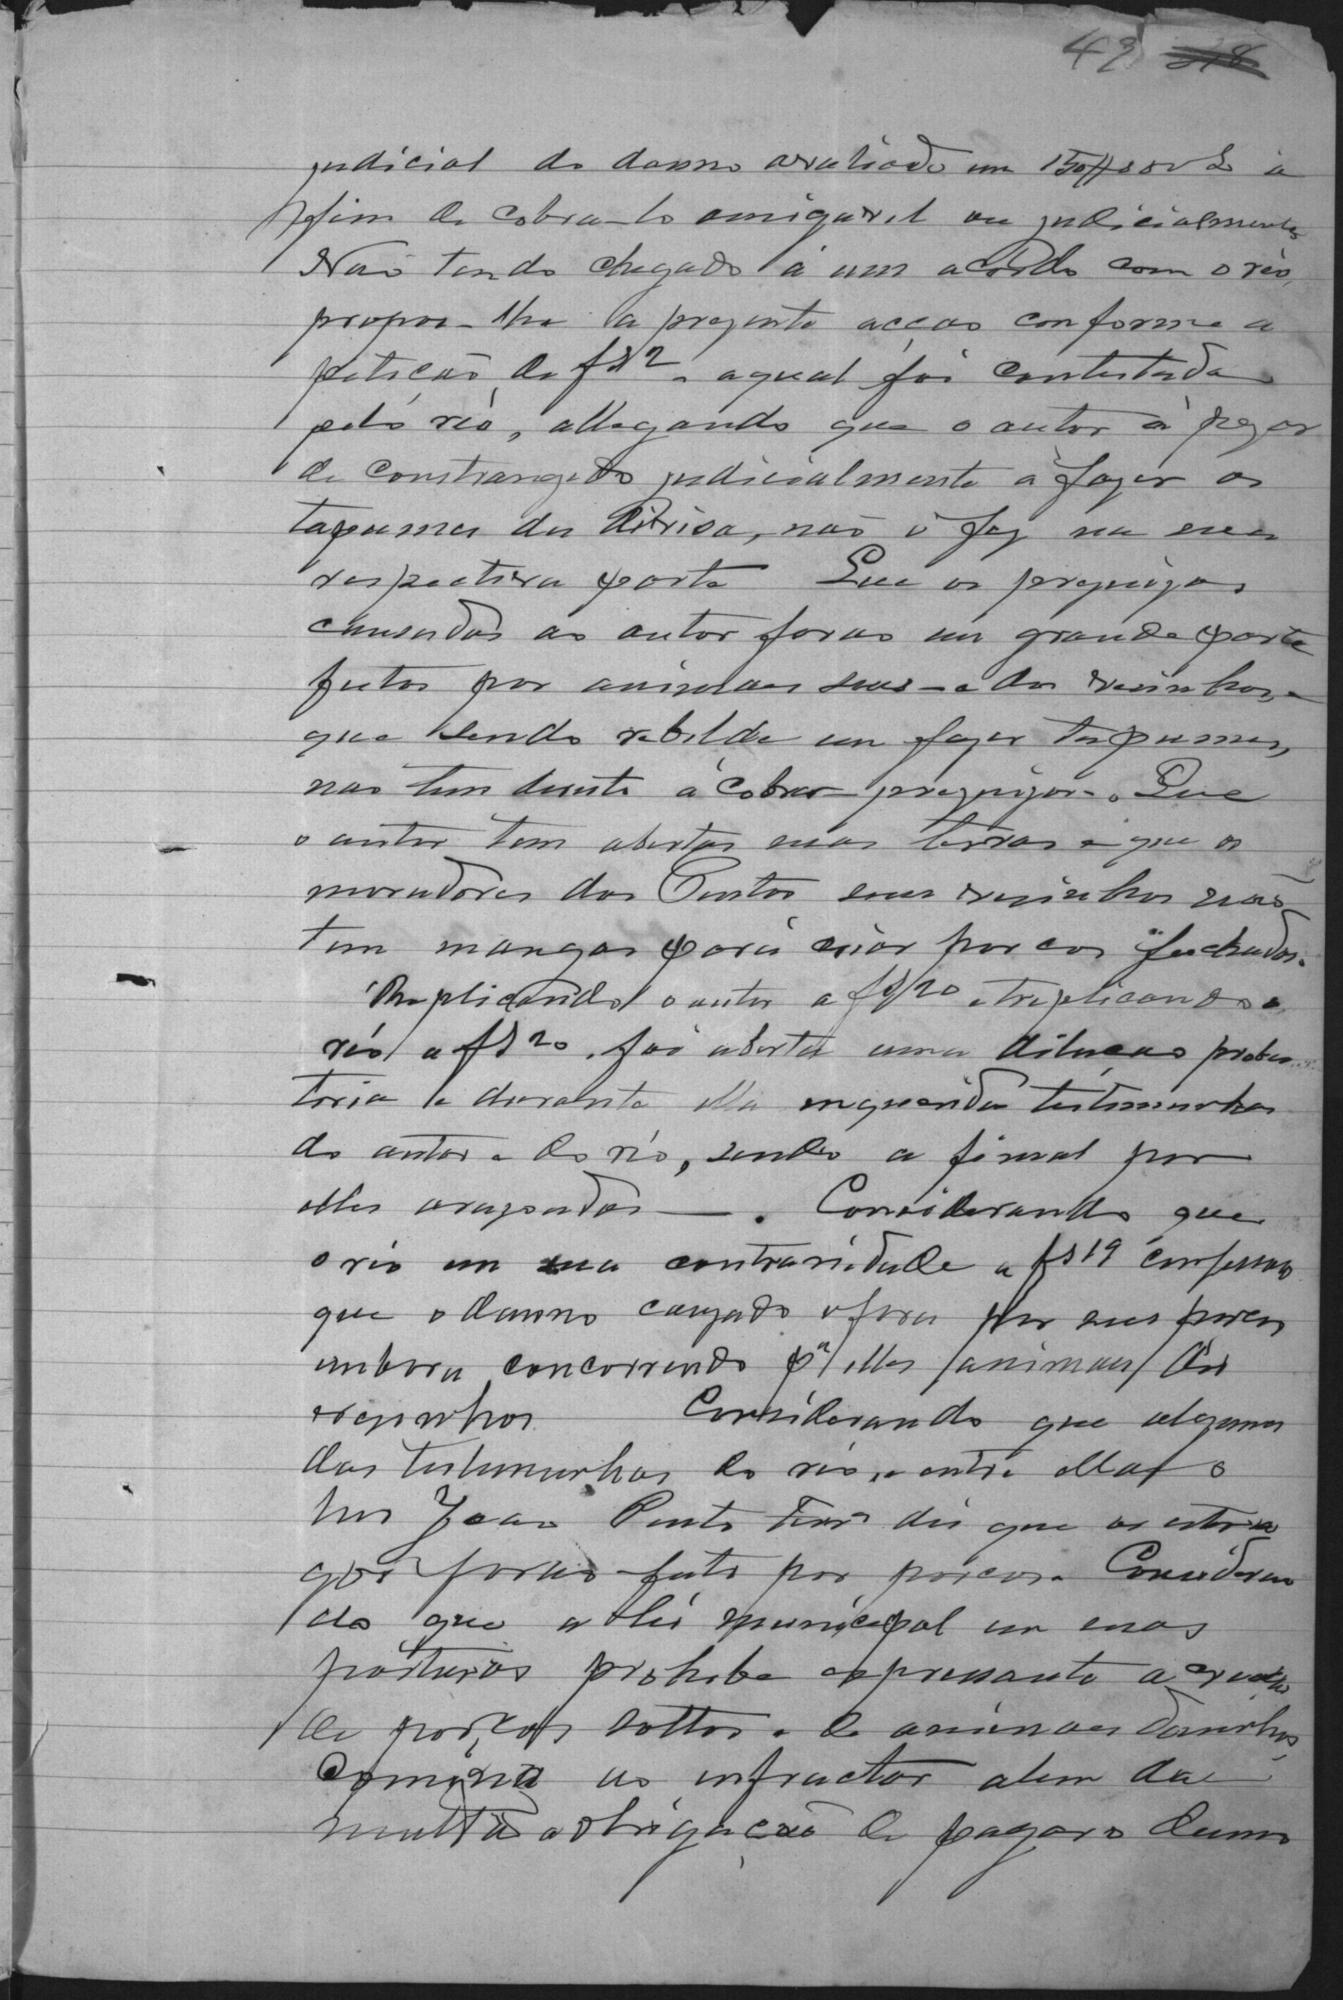 49 38
judicial do damno avaliado em 150$000 e a
fim de cobra-lo amigavel ou judicialmente
Não tendo chegado á um acordo com o réo,
propos-lhe a prezente acção conforme a
petição de fs 2 a qual foi contestada
pelo réo, allegando que o autor á pezar
de constrangido judicialmente á fazer os
tapumes da divisa, não o fez na sua
respectiva parte Que os prejuizos
causados ao autor forão em grande parte
feitos por animaes seus e dos visinhos, e
que sendo rebelde em fazer tapumes,
não tem direito á cobrar prejuizos. Que
o autor tem abertas suas terras e que os
moradores dos Pintos seus visinhos não
tem mangas para criar porcos fechados.
Replicando o autor a fs 20 e treplicando o
réo a fs 20, foi aberta uma dilação proba
toria e durante ella inqueridas testemunhas
do autor e do réo, sendo a final por
elles arazoados. Considerando que
o réo em sua contrariedade a fs 19 confessou
que o damno cauzado o fora por seus porcos
embora concorrendo pª elles animaes dos
vezinhos Considerando que algumas
das testemunhas do réo, e entre ellas o
João Pinto diz que os estra
gos forão feito por porcos. Consideran
do que a lei municipal em suas
posturas prohibe expressante a creação
de porcos soltos e de animaes damninhos,
Comina ao infractor alem da
multa a obrigação de pagar o damno